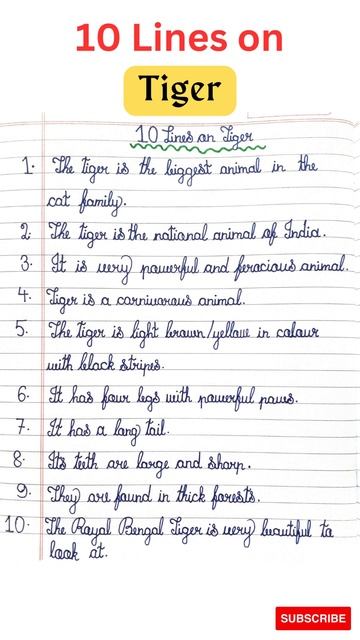 10 Lines on
Tiger
10 Lines on Tiger
1. The tiger is the biggest animal in the
cat family.
2. The tiger is the national animal of India.
3. It is very powerful and ferocious animal.
4. Tiger is a carnivorous animal.
5. The tiger is light brown/yellow in colour
with black stripes.
6. It has four legs with powerful paws.
7. It has a long tail.
8. Its teeth are large and sharp.
9. They are found in thick forests.
10. The Royal Bengal Tiger is very beautiful to
look at.
SUBSCRIBE